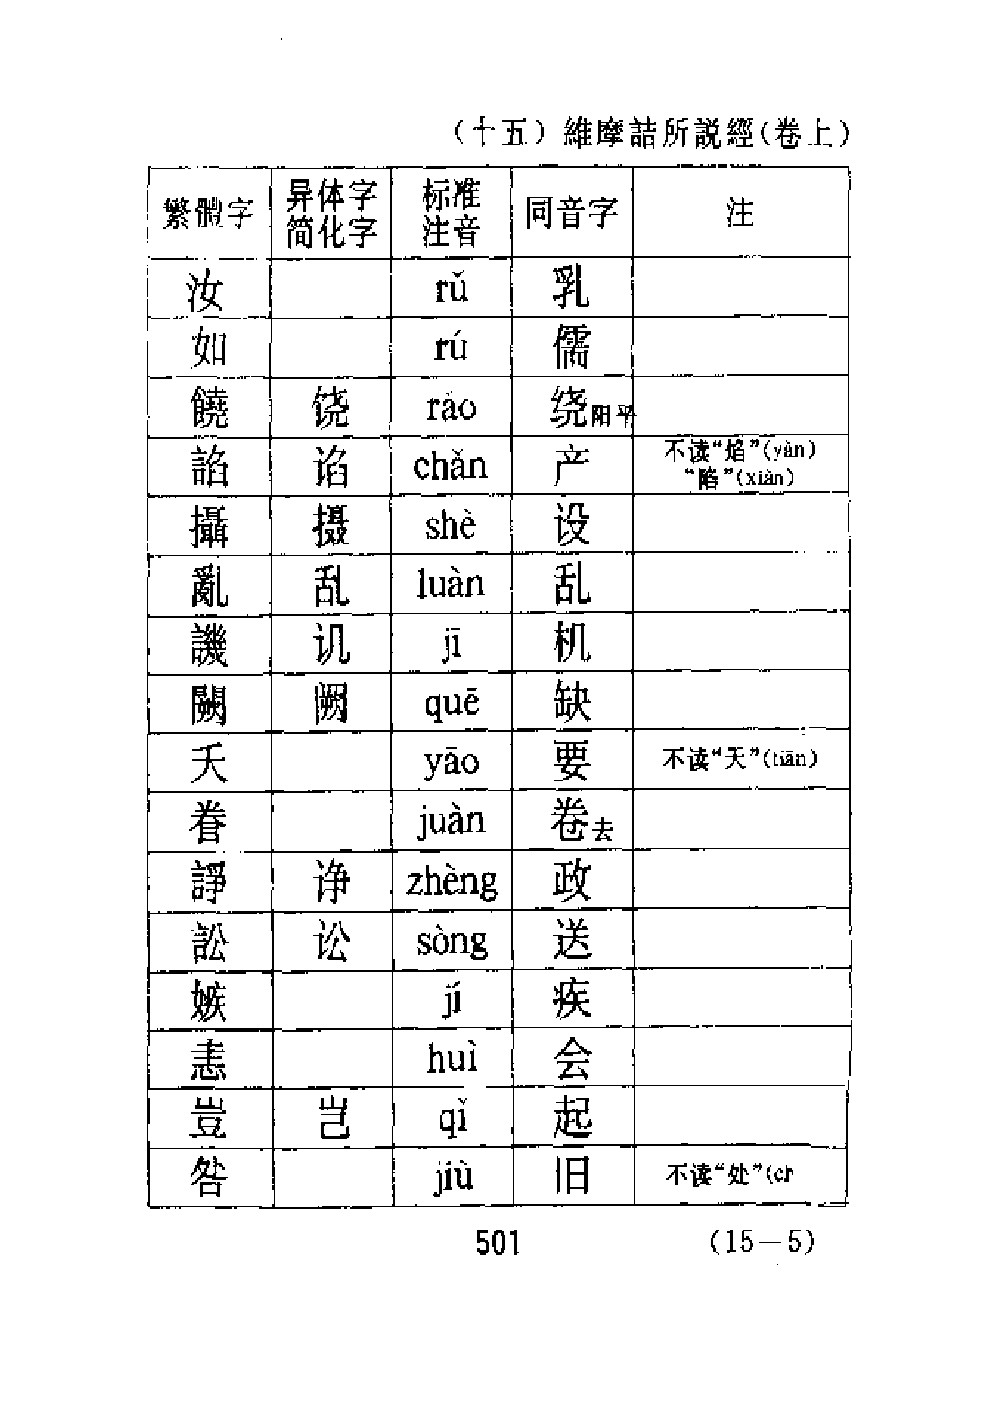 （十五）維摩詰所説經(卷上)
繁體字 异体字简化字 标准注音 同音字 注
汝 rǔ 乳
如 rú 儒
饒 饶 ráo 绕阳平
諂 谄 chǎn 产 不读“焰”(yàn) “陷”(xiàn)
攝 摄 shè 设
亂 乱 luàn 乱
譏 讥 jī 机
闕 阙 quē 缺
夭 yāo 要 不读“天”(tiān)
眷 juàn 卷去
諍 诤 zhèng 政
訟 讼 sòng 送
嫉 jí 疾
恚 huì 会
豈 岂 qǐ 起
咎 jiù 旧 不读“处”(ch
501 (15－5)